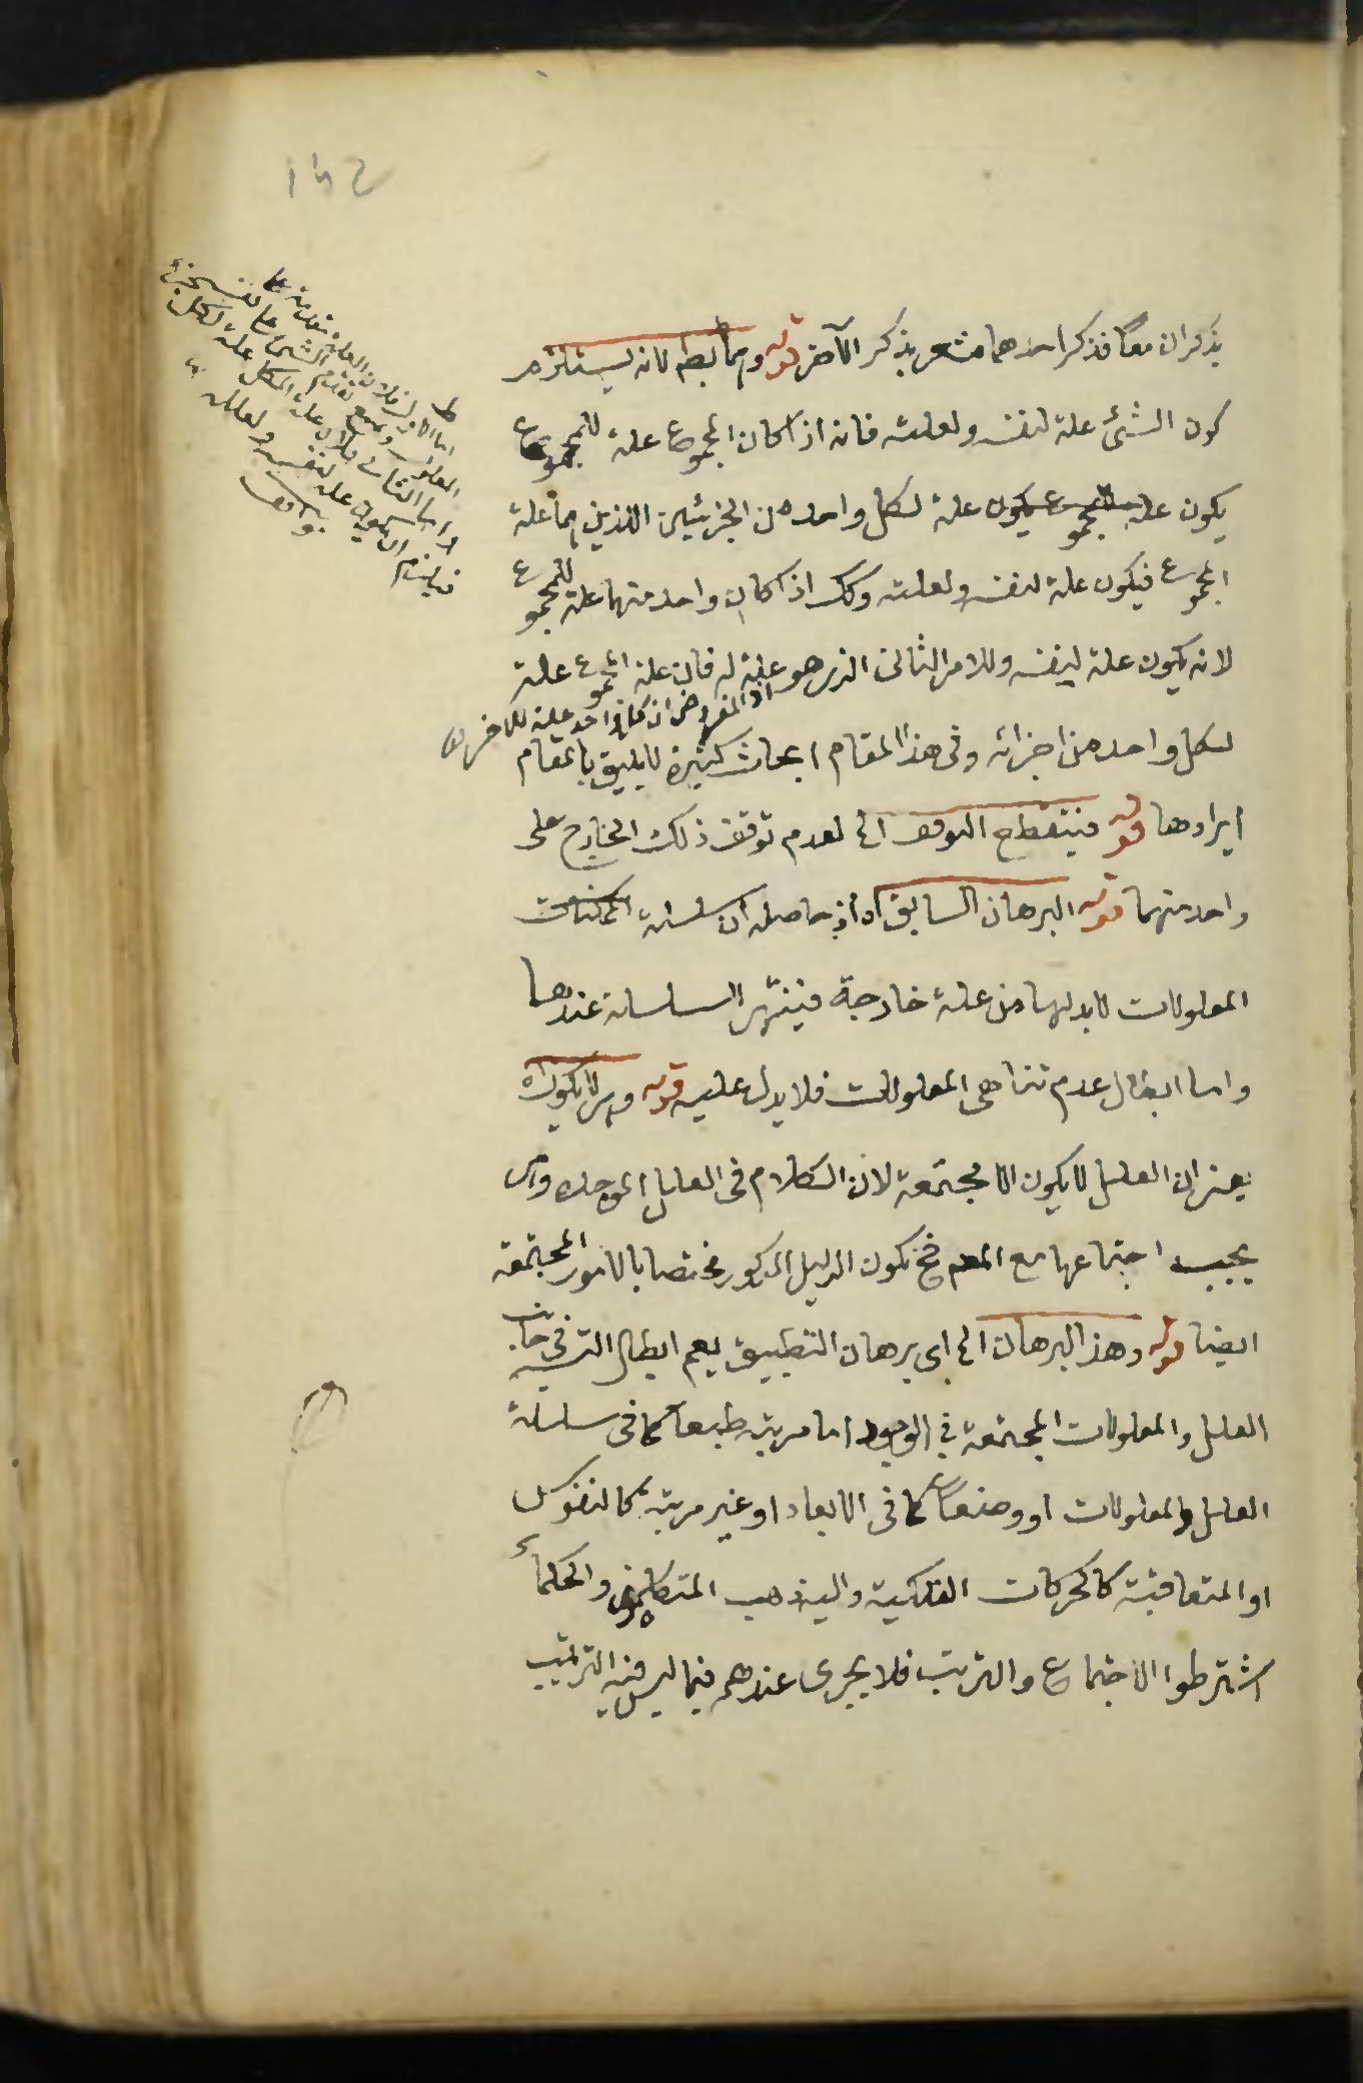 يذكران معا فذكر احدهما مشعر بذكر الآخر قوله وهما بط لانه يستلزم
كون الشئ علة لنفسه ولعلته فانه اذا كان المجموع علة للمجموع
يكون علة للمجموع يكون علة لكل واحد من الجزئين اللذين هما علة
المجموع فيكون علة لنفسه ولعلته وكك اذا كان واحد منهما علة للمجموع
لانه يكون علة لنفسه وللامر الثانى الذى هو علة له فان علة المجموع علة
اذ المفروض ان كل واحد علة للاخر
لكل واحد من اجزائه وفى هذا المقام ابحاث كثيرة لا يليق بالمقام
ايرادها قوله فينقطع التوقف الخ لعدم توقف ذلك الخارج على
واحد منهما قوله البرهان السابق اه اذ حاصله ان سلسلة الممكنات
المعلولات لابد لها من علة خارجة فينتهى السلسلة عندها
واما ابطال عدم تناهى المعلولات فلا يدل عليه قوله وهى لا يكون اه
يعنى ان العلل لا يكون الا مجتمعة لان الكلام فى العلل الموجدة وهى
يجب اجتماعها مع المعلم فح يكون الدليل المذكور مختصا بالامور المجتمعة
ايضا قوله وهذا البرهان الخ اى برهان التطبيق يعم ابطال التس فى جانب
العلل والمعلولات المجتمعة فى الوجود اما مرتبة طبعا كما فى سلسلة
العلل والمعلولات او وضعا كما فى الابعاد او غير مرتبة كالنفوس
او المتعاقبة كالحركات الفلكية واليه ذهب المتكلمون والحكماء
اشترطوا الاجتماع والترتب فلا يجرى عندهم فيما ليس فيه الترتيب
اما الاول فلان العلة متقدمة على
المعلول ويمتنع تقدم الشئ على نفسه
واما الثانى فلان علة الكل علة لكل جزء
فيلزم ان يكون علة لنفسه ولعلله